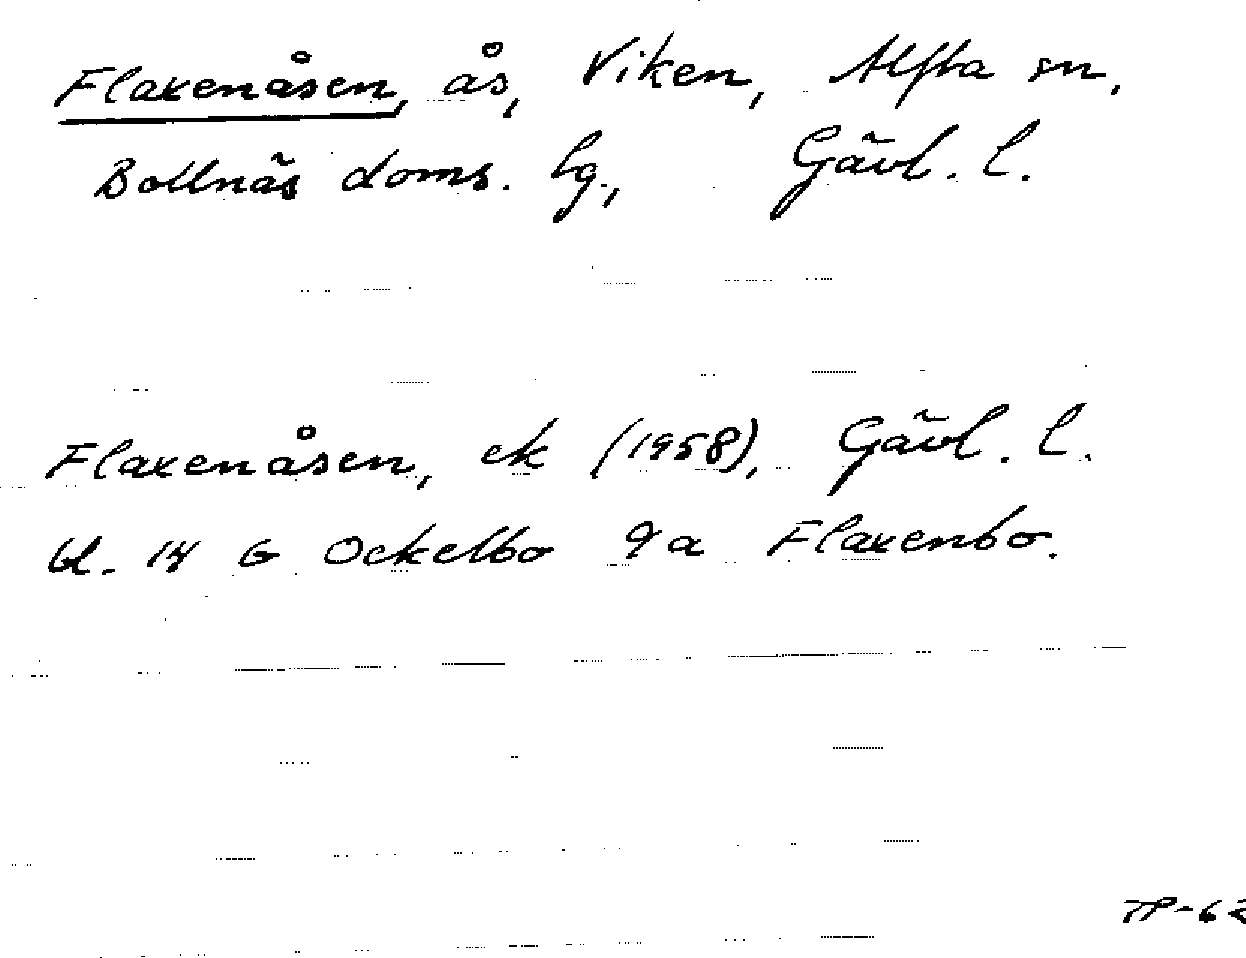 Flaxenåsen, ås, Viken, Alfta sn,
Bollnäs doms. lg., Gävl. l.
Flaxenåsen, ek (1958), Gävl. l.
bl. 14 G Ockelbo 9a Flaxenbo.
TP-62